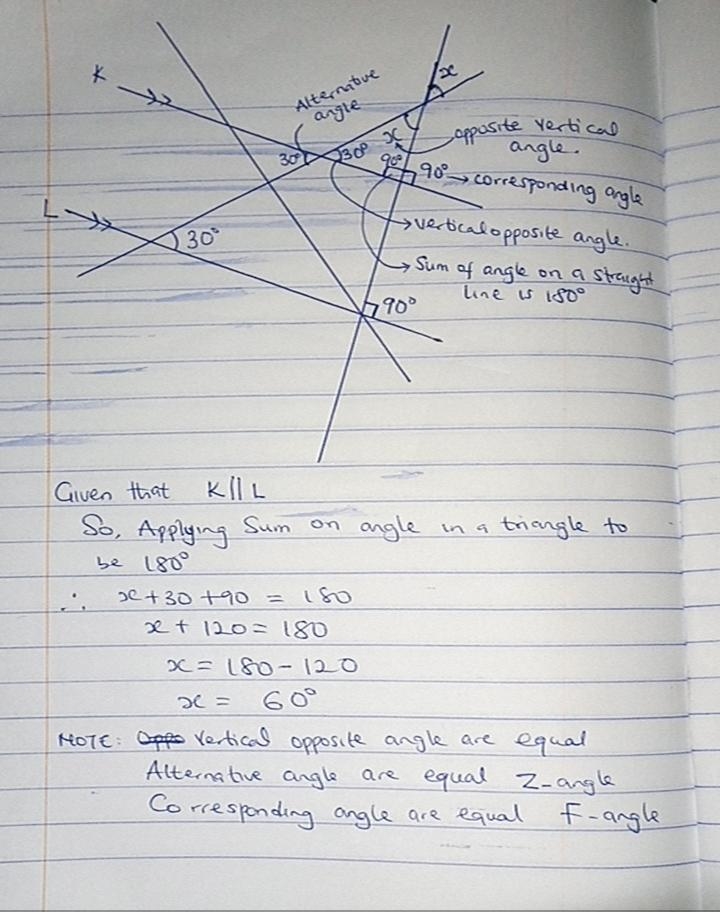 K
x
Alternative
angle
opposite vertical
angle.
x
30°
30°
90°
90° → corresponding angle
L
30°
vertical opposite angle.
Sum of angle on a straight
line is 180°
90°
Given that K || L
So, Applying Sum on angle in a triangle to
be 180°
∴ x + 30 + 90 = 180
x + 120 = 180
x = 180 - 120
x = 60°
NOTE: Oppo Vertical opposite angle are equal
Alternative angle are equal Z-angle
Corresponding angle are equal F-angle